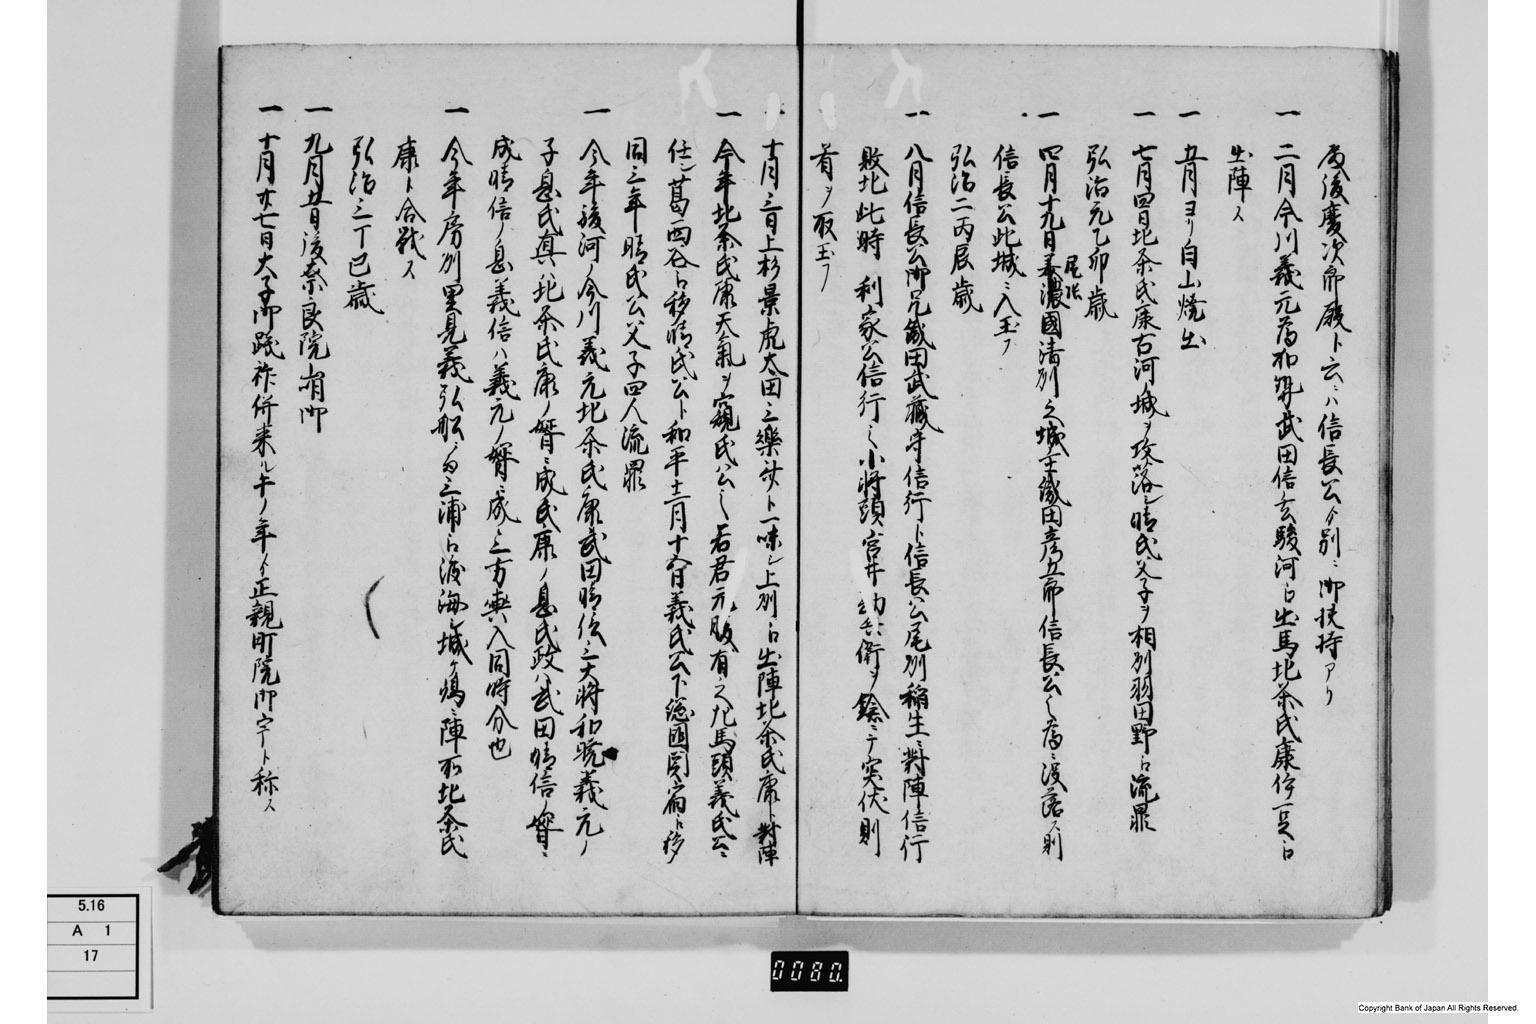 為後慶次郎殿ト云ニハ信長公ゟ別ニ御扶持アリ
一 二月今川義元為加勢武田信玄駿河ヘ出馬北条氏康伊豆ヘ
出陣ス
一 五月ヨリ白山焼出
一 七月四日北条氏康古河ノ城ヲ攻落シ晴氏父子ヲ相州羽田野ヘ流罪
弘治元乙卯歳
一 四月十九日美濃國清州之城主織田彦五郎信長公之為ニ没落ス則
尾張
信長公此城ニ入玉フ
弘治二丙辰歳
一 八月信長公御兄織田武蔵守信行ト信長公尾州稲生ニ對陣信行
敗北此時 利家公信行之小将頭宮井勘兵衛ヲ鎗ニテ突伏則
首ヲ取玉フ
一 十月三日上杉景虎太田三樂斎ト一味シ上州ヘ出陣北条氏康ト對陣
一 今年北条氏康天氣ヲ窺氏公之若君元服有之左馬頭義氏公ニ
任シ葛西谷ヘ移晴氏公ト和平十二月十六日義氏公下總國関宿ヘ移
同三年晴氏公父子四人流罪
一 今年駿河ノ今川義元北条氏康武田晴信三大将和睦義元ノ
子息氏真ハ北条氏康ノ婿ニ成氏康ノ息氏政ハ武田晴信ノ婿ニ
成晴信ノ息義信ハ義元ノ婿ニ成三方輿入同時分也
一 今年房州里見義弘船ニ而三浦ヘ渡海シ城ヶ嶋ニ陣取北条氏
康ト合戦ス
弘治三丁巳歳
一 九月五日後奈良院崩御
一 十月廿七日太子御践祚併来ル午ノ年ゟ正親町院御宇ト称ス
5.16
A 1
17
0080.
Copyright Bank of Japan All Rights Reserved.